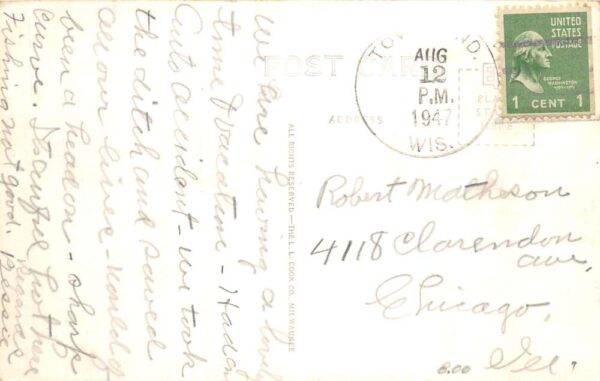 We are having a lovely
time & vacation - Had an
Auto accident - we took
the ditch and saved
all our lives - would of
been a headon - sharp
curve. Thankful just here
Fishing not good. Regards
Bessie
POST CARD
ADDRESS
ALL RIGHTS RESERVED - THE L. L. COOK CO. MILWAUKEE
AUG
12
P.M.
1947
WIS.
UNITED
STATES
POSTAGE
GEORGE
WASHINGTON
1 CENT 1
Robert Matheson
4118 Clarendon
ave,
Chicago,
Ill.
8.00